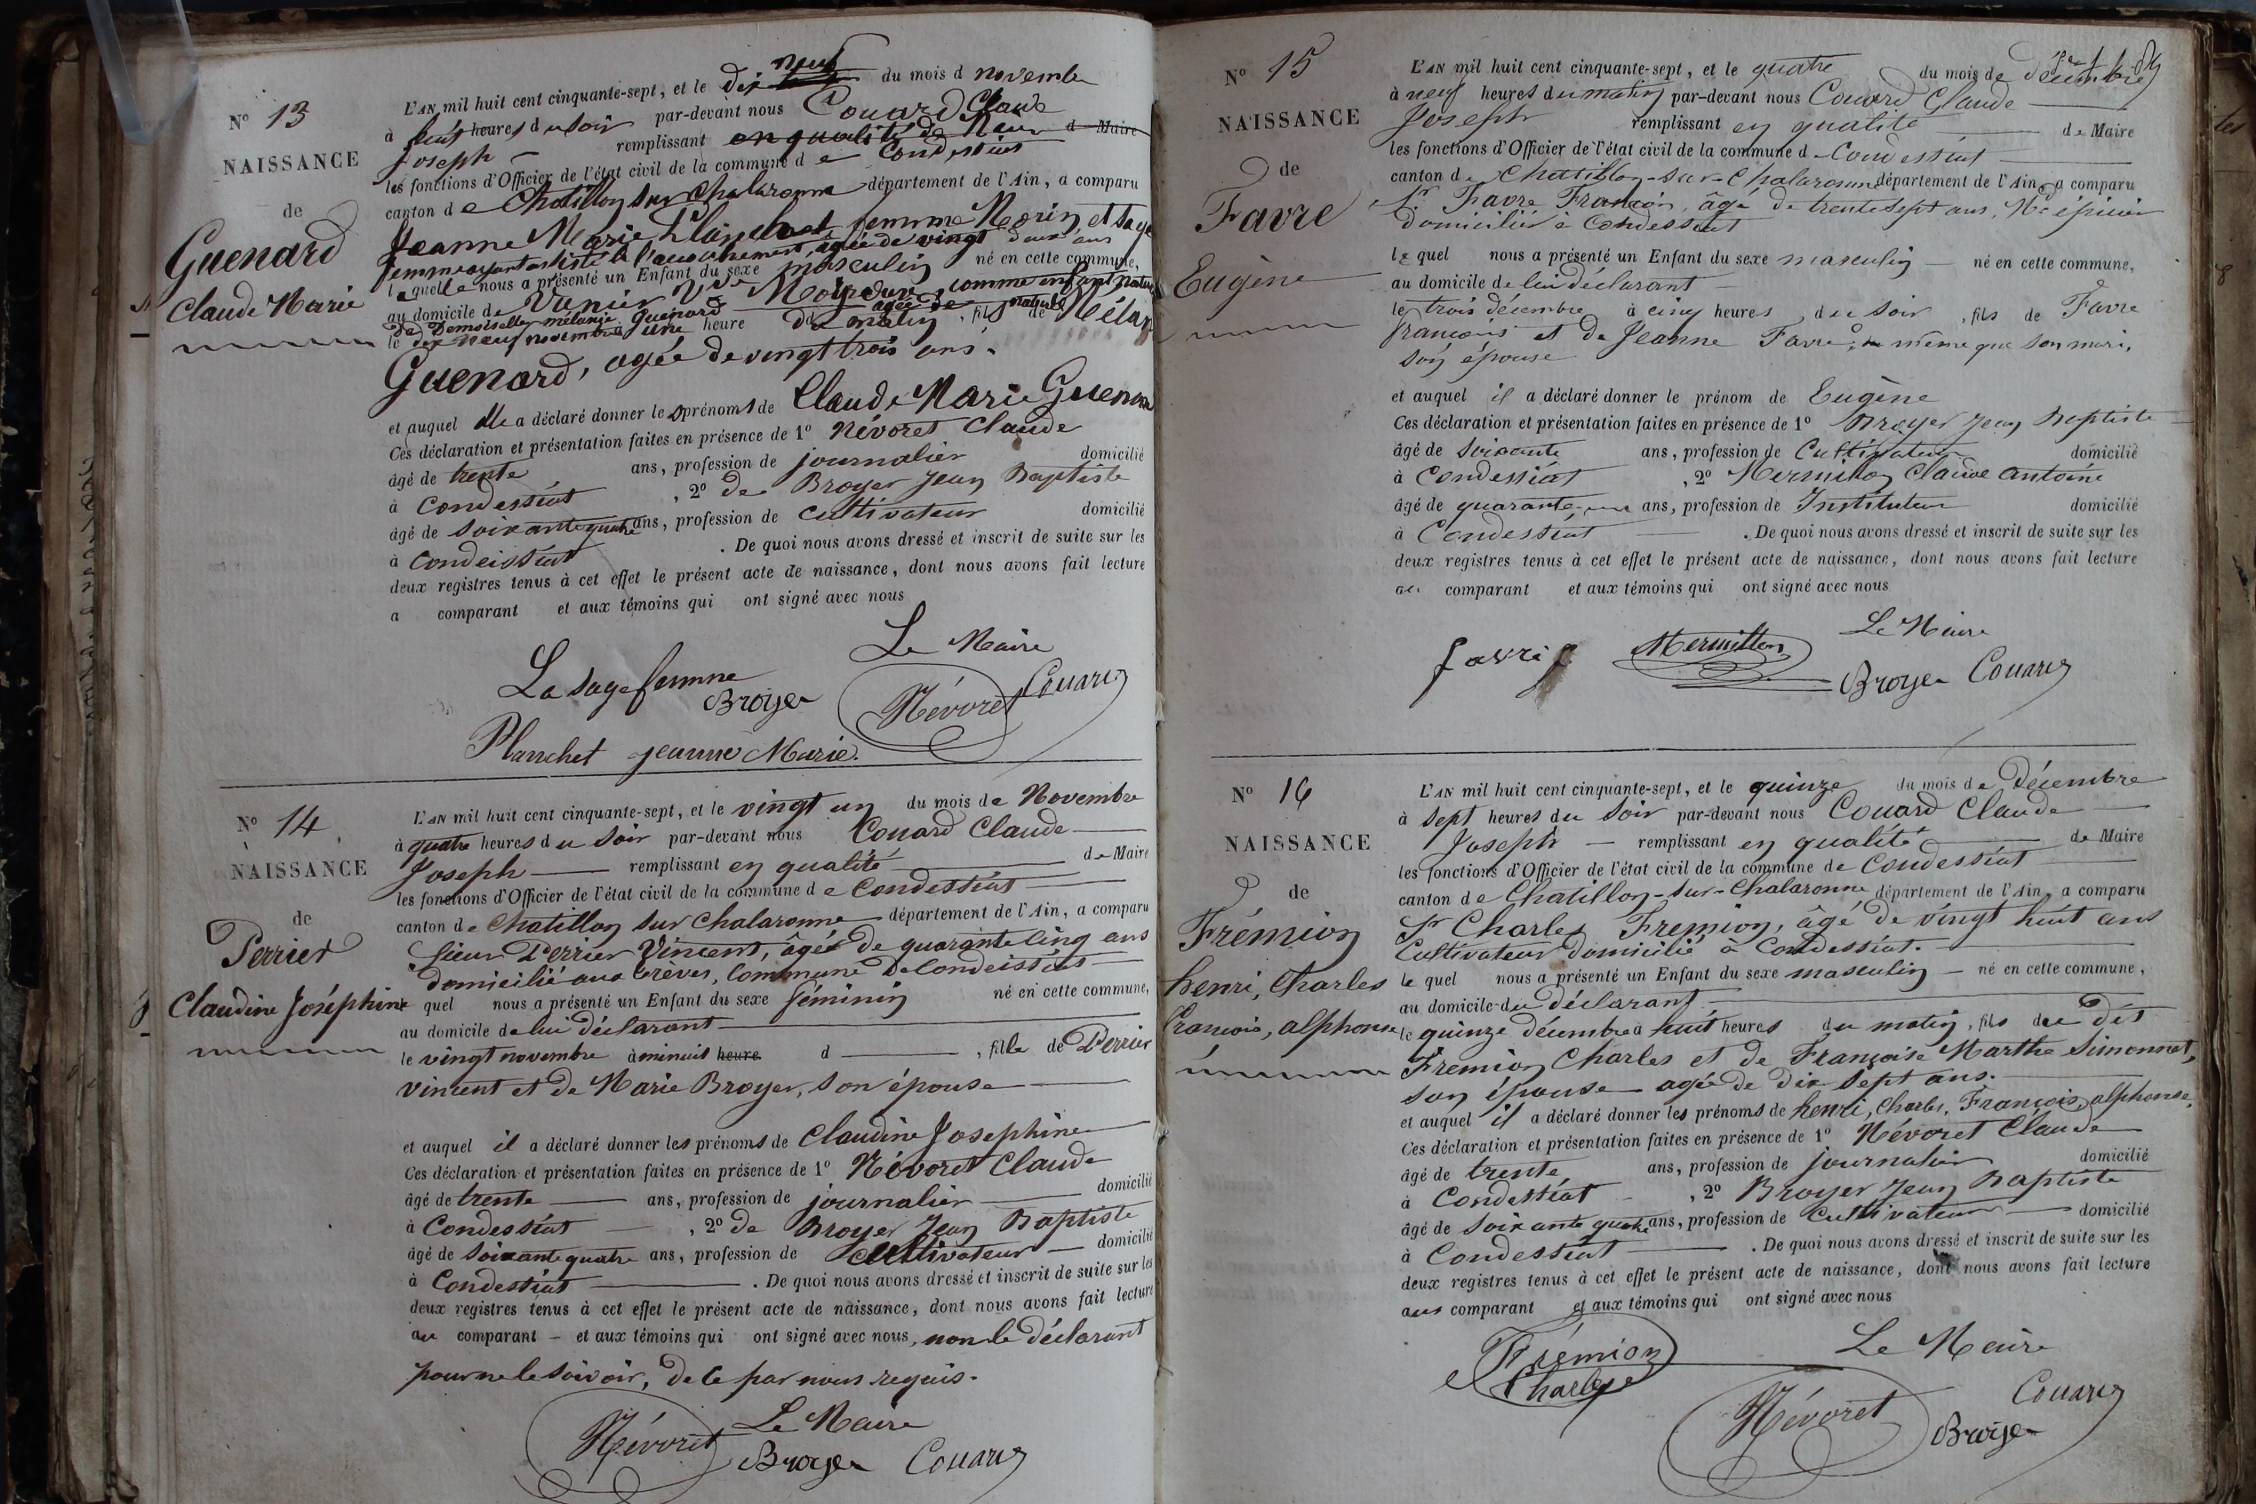 N° 13
NAISSANCE
de
Guenard
Claude Marie
L'AN mil huit cent cinquante-sept, et le dix neuf du mois d novembre
à huit heures du soir par-devant nous Couard Claude
Joseph remplissant en qualité de Maire d Maire
les fonctions d'Officier de l'état civil de la commune de Condessiat
canton de Chatillon sur Chalaronne département de l'Ain, a comparu
Jeanne Marie Planchet femme Morin et sage
femme ayant assisté à l'accouchement, agée de vingt deux ans
laquelle nous a présenté un Enfant du sexe masculin né en cette commune,
au domicile de Vve comme enfant naturel
de Demoiselle mélanie Guenard
le dix neuf novembre à une heure du matin, fils naturel de Mélanie
Guenard, agée de vingt trois ans.
et auquel elle a déclaré donner les prénoms de Claude Marie Guenard
Ces déclaration et présentation faites en présence de 1° Névoret Claude
âgé de trente ans, profession de journalier domicilié
à Condessiat, 2° de Broyer Jean Baptiste
âgé de soixante quatre ans, profession de cultivateur domicilié
à Condeissiat. De quoi nous avons dressé et inscrit de suite sur les
deux registres tenus à cet effet le présent acte de naissance, dont nous avons fait lecture
a comparant et aux témoins qui ont signé avec nous
Le Maire
La sage femme
Broyer Névoret Couard
Planchet jeanne Marie.
N° 14
NAISSANCE
de
Perrier
Claudine Joséphine
L'AN mil huit cent cinquante-sept, et le vingt un du mois de Novembre
à quatre heures du soir par-devant nous Couard Claude
Joseph remplissant en qualité de Maire
les fonctions d'Officier de l'état civil de la commune de Condessiat
canton de Chatillon sur Chalaronne département de l'Ain, a comparu
sieur Perrier Vincent, âgé de quarante cinq ans
domicilié aux brèves, Commune de Condeissiat
quel nous a présenté un Enfant du sexe féminin né en cette commune,
au domicile de lui déclarant
le vingt novembre à minuit heure d, fille de Perrier
Vincent et de Marie Broyer, son épouse
et auquel il a déclaré donner les prénoms de Claudine Josephine
Ces déclaration et présentation faites en présence de 1° Névoret Claude
âgé de trente ans, profession de journalier domicilié
à Condessiat, 2° de Broyer Jean Baptiste
âgé de soixante quatre ans, profession de cultivateur domicilié
à Condessiat. De quoi nous avons dressé et inscrit de suite sur les
deux registres tenus à cet effet le présent acte de naissance, dont nous avons fait lecture
au comparant et aux témoins qui ont signé avec nous, non le déclarant
pour ne le savoir, de ce par nous requis.
Le Maire
Névoret Broyer Couard
N° 15
NAISSANCE
de
Favre
Eugène
L'AN mil huit cent cinquante-sept, et le quatre du mois de décembre
à neuf heures du matin par-devant nous Couard Claude
Joseph remplissant en qualité de Maire
les fonctions d'Officier de l'état civil de la commune d Condessiat
canton de Chatillon-sur-Chalaronne département de l'Ain, a comparu
Sr Favre François, âgé de trente sept ans, Md épicier
domicilié à Condessiat
lequel nous a présenté un Enfant du sexe masculin né en cette commune,
au domicile de lui déclarant
le trois décembre à cinq heures du soir, fils de Favre
françois et de Jeanne Favre, même que son mari,
son épouse
et auquel il a déclaré donner le prénom de Eugène
Ces déclaration et présentation faites en présence de 1° Broyer Jean Baptiste
âgé de soixante ans, profession de Cultivateur domicilié
à Condessiat, 2° Mermillon Claude Antoine
âgé de quarante-un ans, profession de Instituteur domicilié
à Condessiat. De quoi nous avons dressé et inscrit de suite sur les
deux registres tenus à cet effet le présent acte de naissance, dont nous avons fait lecture
au comparant et aux témoins qui ont signé avec nous
Le Maire
Mermillon
Broyer Couard
N° 16
NAISSANCE
de
Frémion
henri, Charles
François, alphonse
L'AN mil huit cent cinquante-sept, et le quinze du mois de Décembre
à sept heures du soir par-devant nous Couard Claude
Joseph remplissant en qualité de Maire
les fonctions d'Officier de l'état civil de la commune de Condessiat
canton de Chatillon-sur-Chalaronne département de l'Ain, a comparu
Sr Charles Fremion, âgé de vingt huit ans
Cultivateur domicilié à Condessiat.
le quel nous a présenté un Enfant du sexe masculin né en cette commune,
au domicile du déclarant
le quinze décembre à huit heures du matin, fils du dit
Fremion Charles et de Françoise Marthe Simonnet,
son épouse agée de dix sept ans.
et auquel il a déclaré donner les prénoms de henri, Charles, François, alphonse.
Ces déclaration et présentation faites en présence de 1° Névoret Claude
âgé de trente ans, profession de journalier domicilié
à Condessiat, 2° Broyer Jean Baptiste
âgé de soixante quatre ans, profession de Cultivateur domicilié
à Condessiat. De quoi nous avons dressé et inscrit de suite sur les
deux registres tenus à cet effet le présent acte de naissance, dont nous avons fait lecture
aux comparant et aux témoins qui ont signé avec nous
Le Maire
Frémion
Charles
Névoret Broyer Couard